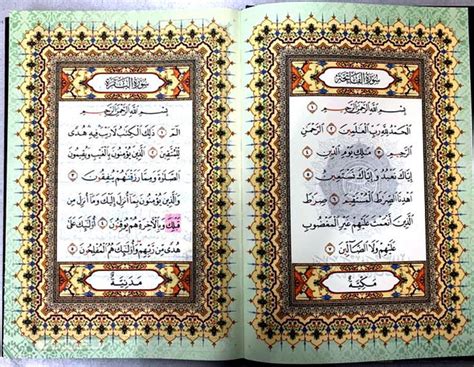 سُورَةُ الْفَاتِحَةِ
بِسْمِ اللَّهِ الرَّحْمَٰنِ الرَّحِيمِ ١
الْحَمْدُ لِلَّهِ رَبِّ الْعَٰلَمِينَ ٢ الرَّحْمَٰنِ
الرَّحِيمِ ٣ مَٰلِكِ يَوْمِ الدِّينِ ٤
إِيَّاكَ نَعْبُدُ وَإِيَّاكَ نَسْتَعِينُ ٥
اهْدِنَا الصِّرَٰطَ الْمُسْتَقِيمَ ٦ صِرَٰطَ
الَّذِينَ أَنْعَمْتَ عَلَيْهِمْ غَيْرِ الْمَغْضُوبِ
عَلَيْهِمْ وَلَا الضَّالِّينَ ٧
مَكِّيَّةٌ
سُورَةُ الْبَقَرَةِ
بِسْمِ اللَّهِ الرَّحْمَٰنِ الرَّحِيمِ
الٓمٓ ١ ذَٰلِكَ الْكِتَٰبُ لَا رَيْبَ فِيهِ هُدًى
لِلْمُتَّقِينَ ٢ الَّذِينَ يُؤْمِنُونَ بِالْغَيْبِ وَيُقِيمُونَ
الصَّلَوٰةَ وَمِمَّا رَزَقْنَٰهُمْ يُنْفِقُونَ ٣
وَالَّذِينَ يُؤْمِنُونَ بِمَا أُنْزِلَ إِلَيْكَ وَمَا أُنْزِلَ مِنْ
قَبْلِكَ وَبِالْآخِرَةِ هُمْ يُوقِنُونَ ٤ أُولَٰئِكَ عَلَىٰ
هُدًى مِنْ رَبِّهِمْ وَأُولَٰئِكَ هُمُ الْمُفْلِحُونَ ٥
مَدَنِيَّةٌ